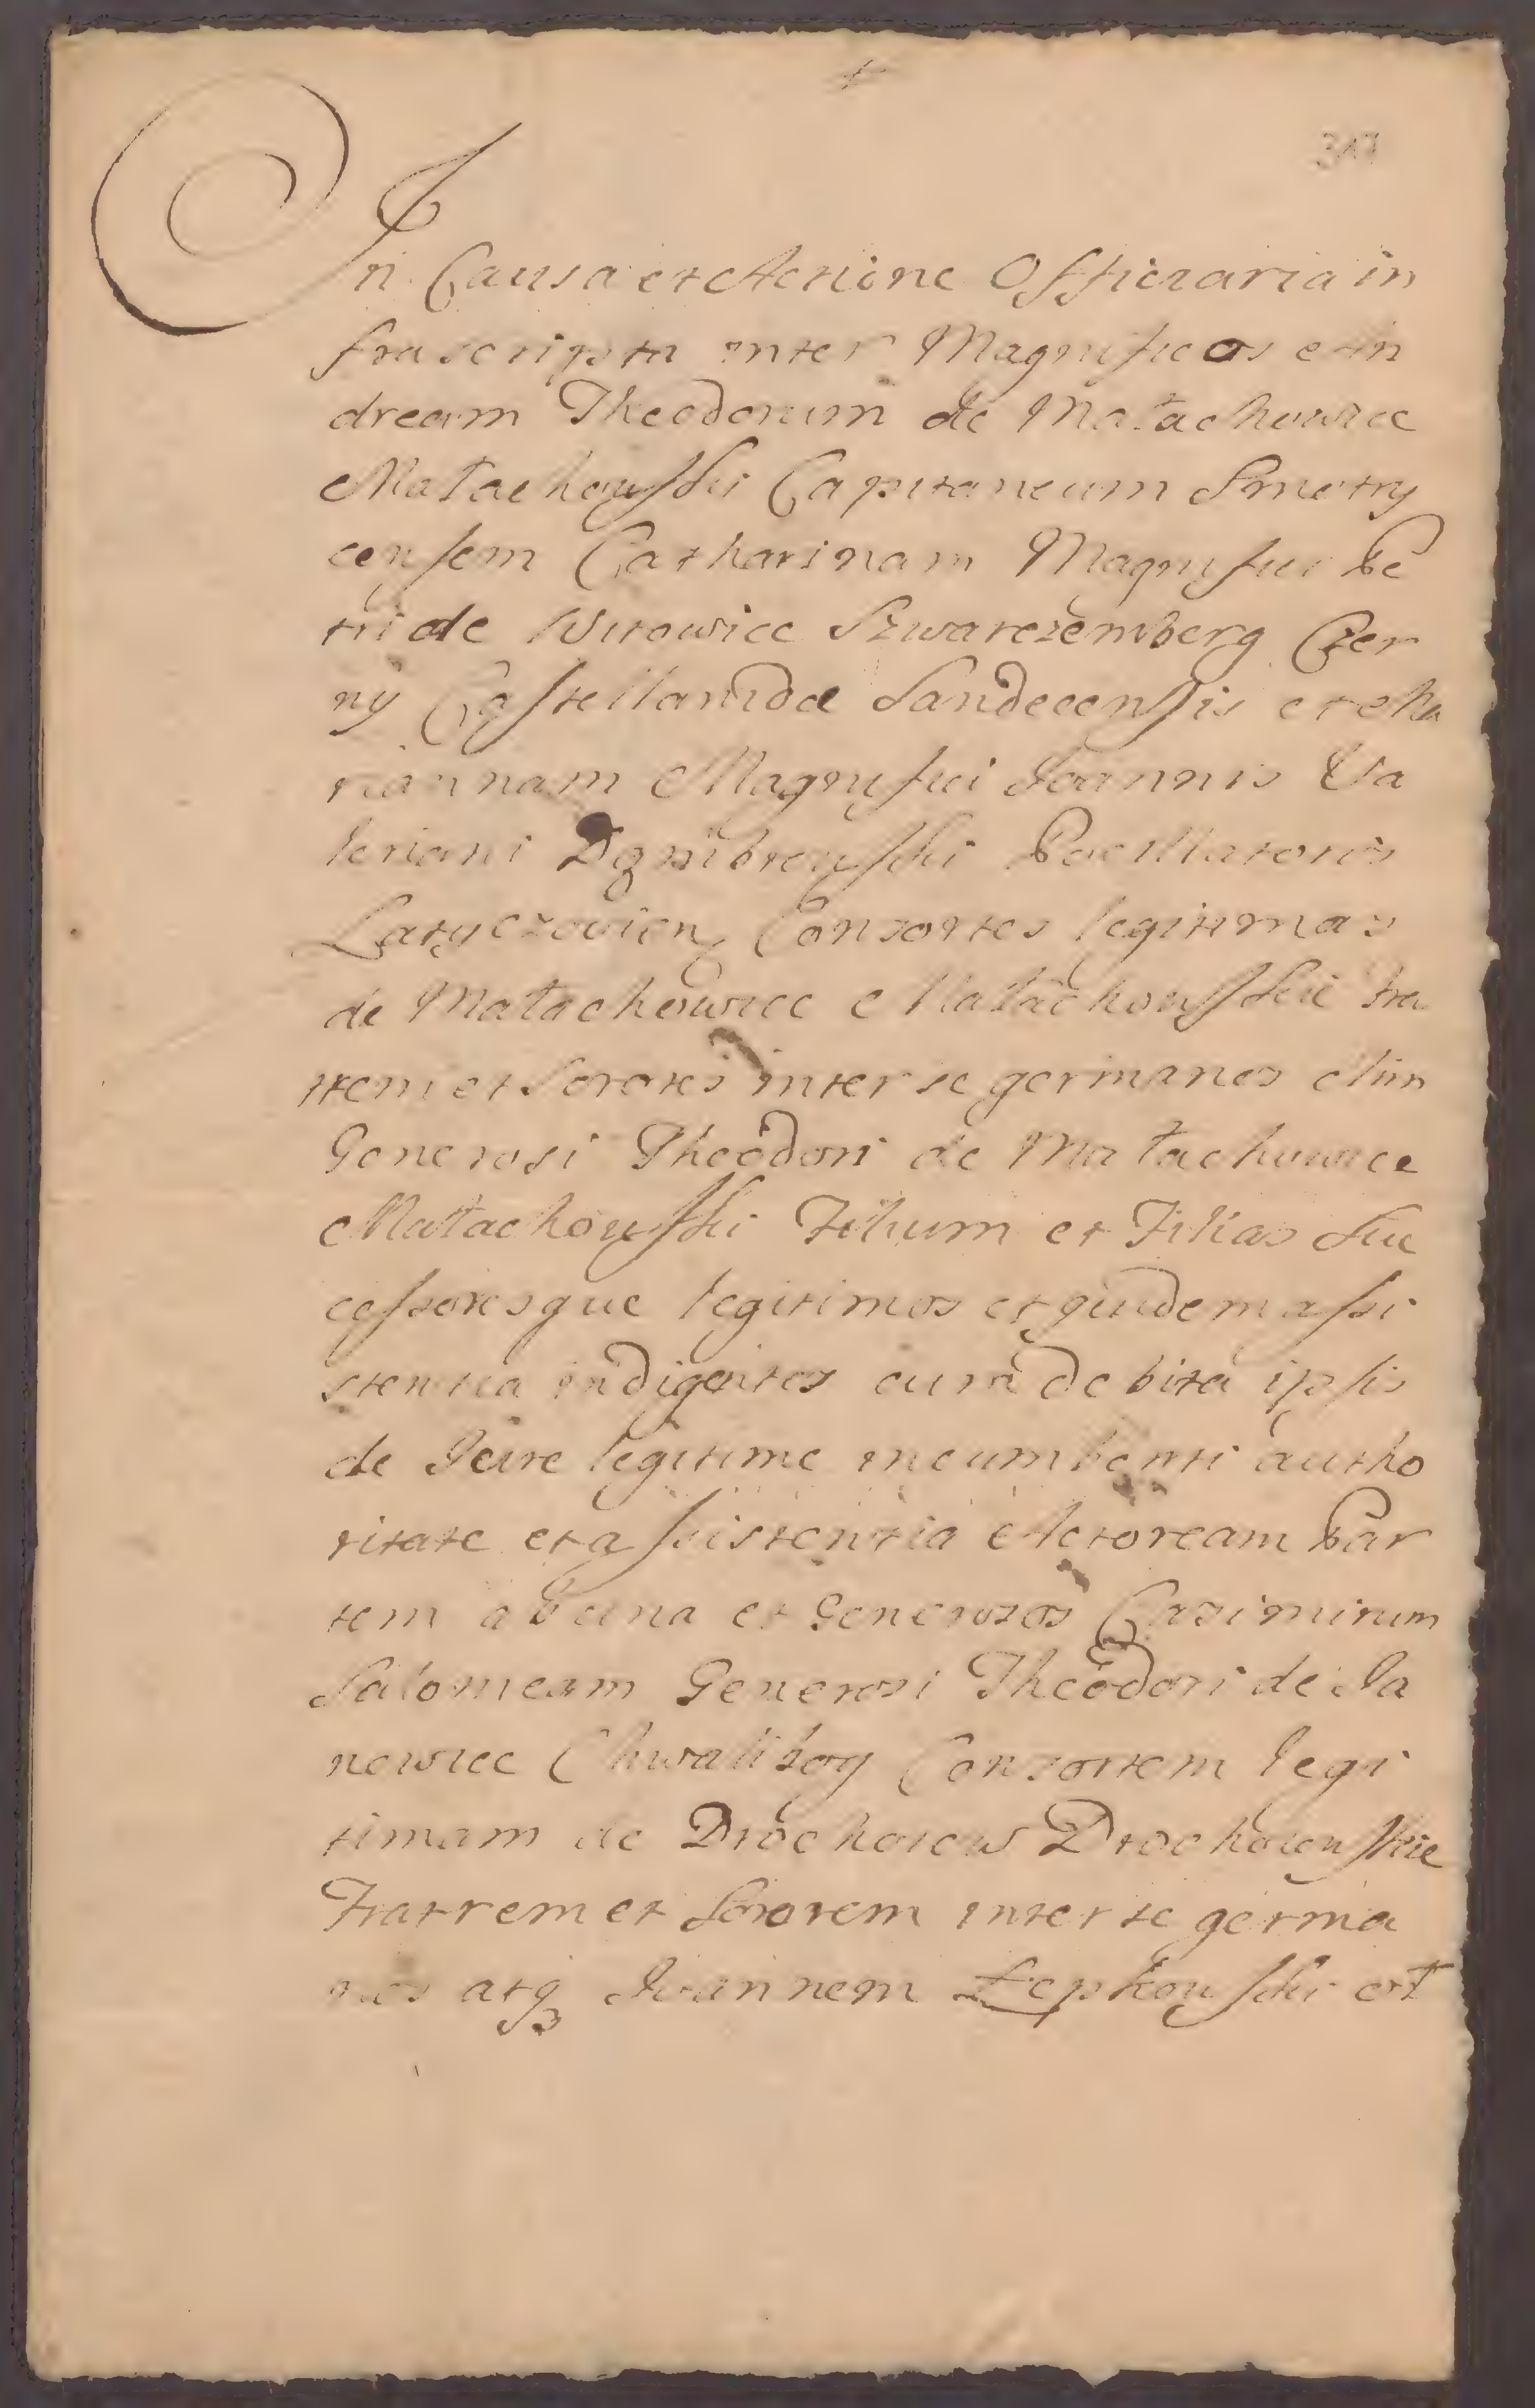 317
In Causa et Actione Officiaria in
frascripta inter Magnificos An
dream Theodorum de Małachowice
Małachowski Capitaneum Smotry
censem Catharinam Magnifici Pe
tri de Witowice Szwarczemberg Czer
ny Castellanidæ Sandecensis et Ma
riannam Magnifici Joannis Va
leriani Dąmbrowski Pocillatoris
Latyczovien Consortes legitimas
de Małachowice Małachowskie Fra
trem et Sorores inter se germanos olim
Generosi Theodori de Małachowice
Małachowski Filium et Filias Suc
cessoresque legitimos et quidem assi
stentia indigentes cum debita ipsis
de Jure legitime incumbenti autho
ritate et assistentia Actoream Par
tem ab una et Generosos Casimirum
Salomeam Generosi Theodori de Ja
nowice Chwalibog Consortem legi
timam de Drochoiow Drochoiewskie
Fratrem et Sororem inter se germa
nos atq3 Joannem Łepkowski et